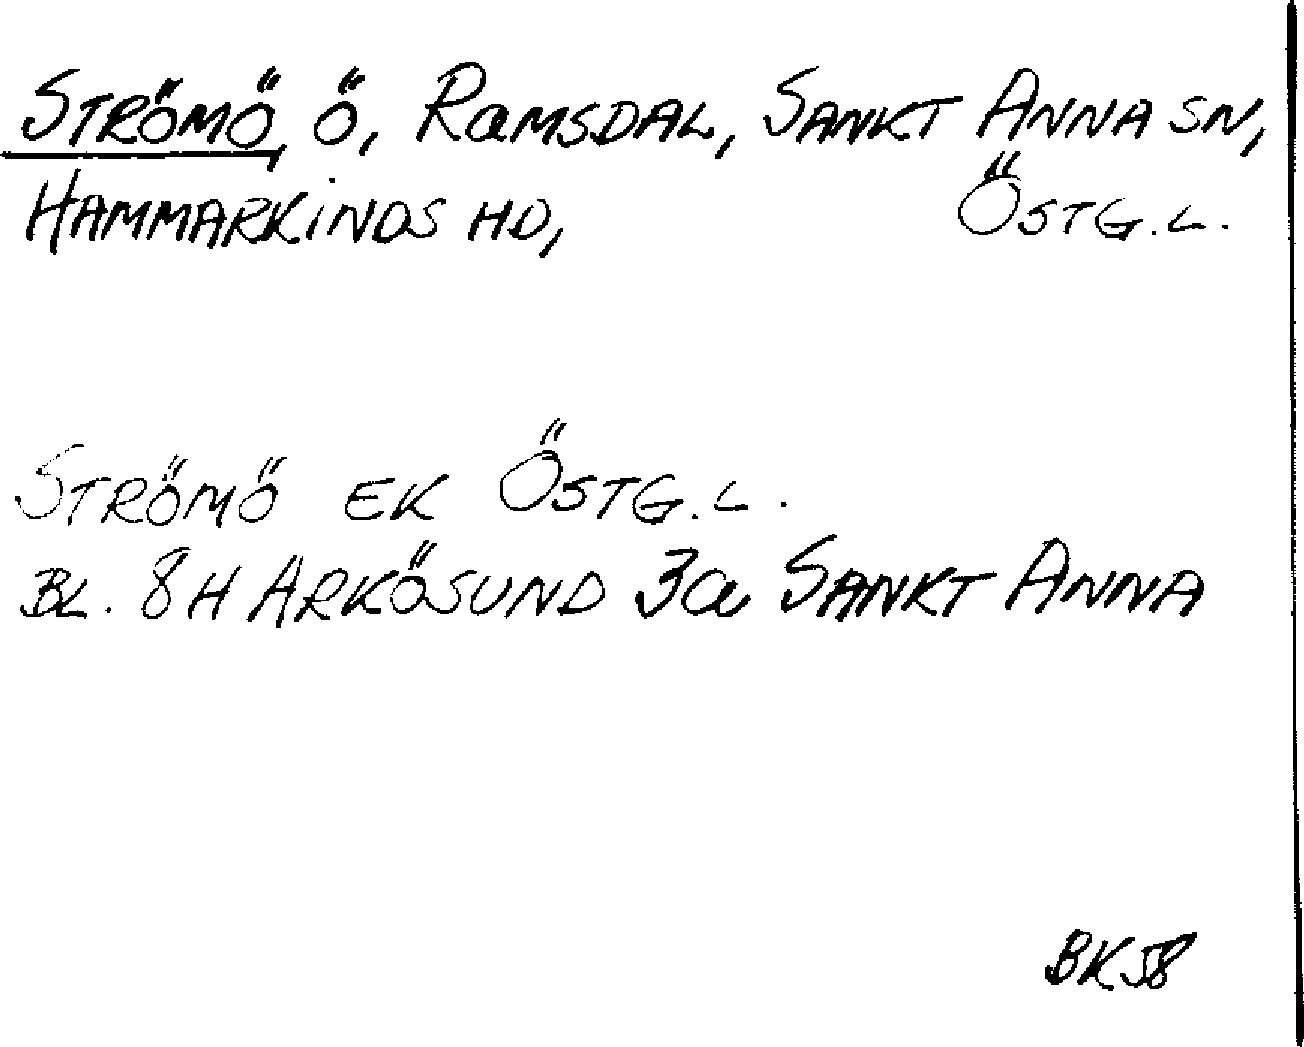 STRÖMÖ, Ö, RAMSDAL, SANKT ANNA SN,
HAMMARKINDS HD, ÖSTG.L.
STRÖMÖ EK ÖSTG.L.
BL. 8H ARKÖSUND 3a SANKT ANNA
BK58